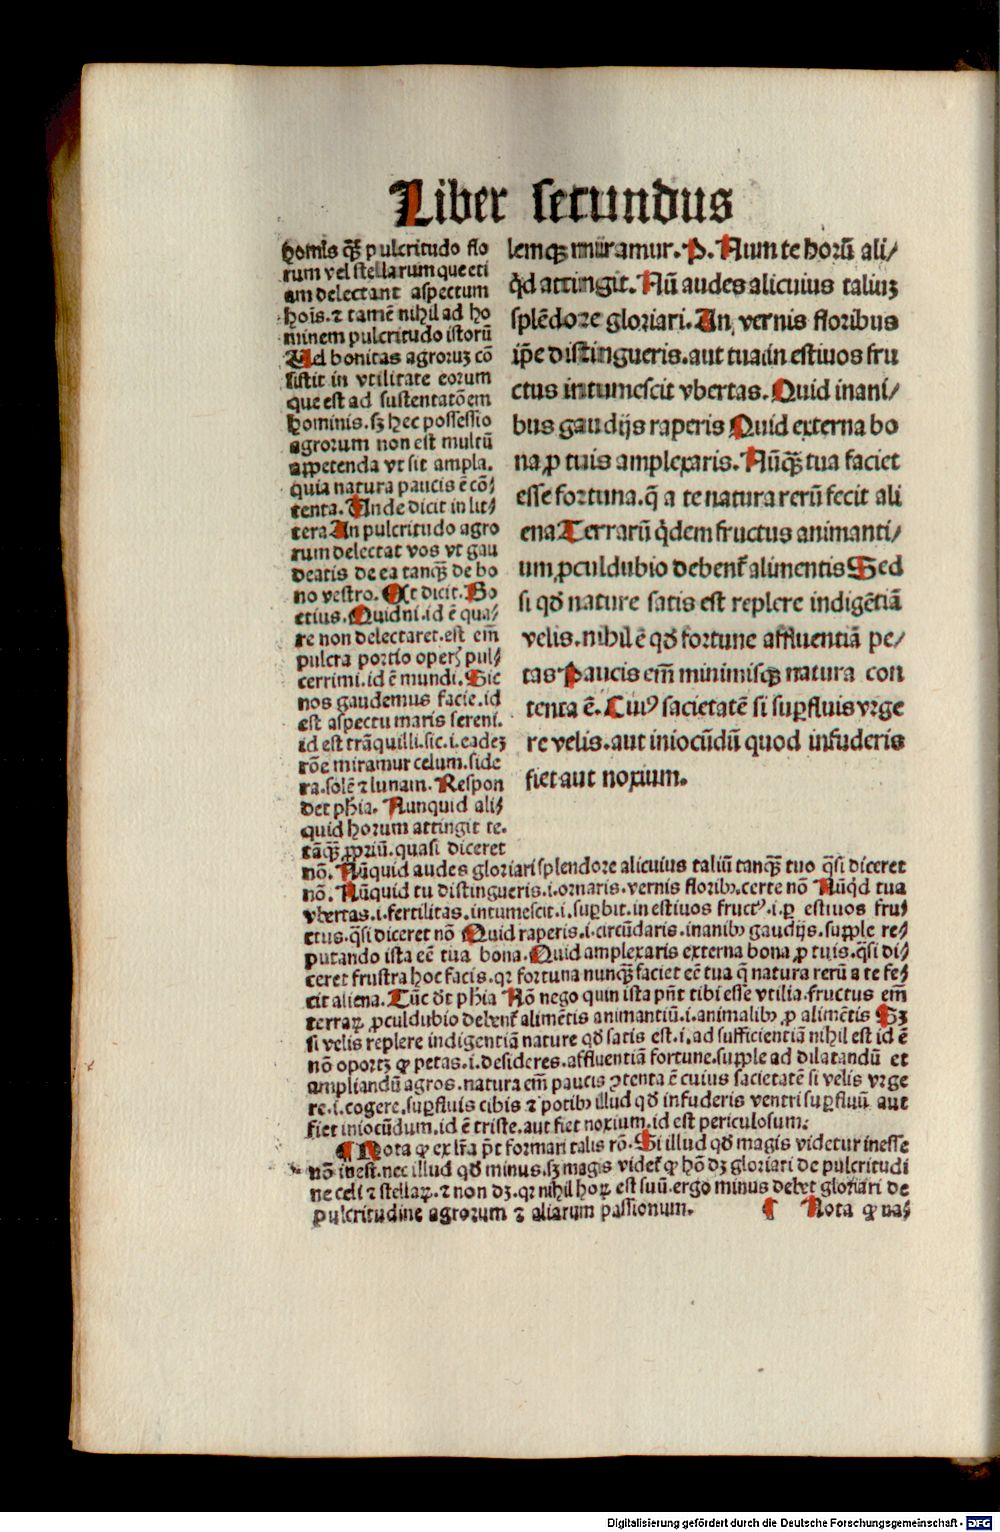 Liber secundus
homis qͣꝫ pulcritudo flo
rum vel stellarum que eti
am delectant aspectum
hoīs. ⁊ tamē nihil ad ho
minem pulcritudo istorū
Ad bonitas agroruꝫ cō
sistit in vtilitate eorum
que est ad sustentatōem
hominis. sꝫ hec possessio
agrorum non est multū
appetenda vt sit ampla.
quia natura paucis ē cō⸗
tenta. Unde dicit in lit⸗
tera An pulcritudo agro
rum delectat vos vt gau
deatis de ea tanqͣꝫ de bo
no vestro. Et dicit. Bo
etius. Quidni .id ē qua⸗
re non delectaret. est em̄
pulcra portio oper̄ pul⸗
cerrimi. id ē mundi. Sic
nos gaudemus facie. id
est aspectu maris sereni.
id est trāquilli. sic .i. eadeꝫ
rōe miramur celum. side
ra. solē ⁊ lunam. Respon
det ph̄ia. Nunquid ali⸗
quid horum attingit te.
tāqͣꝫ ꝓpriū. quasi diceret
lemqꝫ miramur. P. Num te horū ali/
qͥd attingit. Nū audes alicuius taliuꝫ
splēdore gloriari. An vernis floribus
ip̄e distingueris. aut tua in estiuos fru
ctus intumescit vbertas. Quid inani/
bus gaudijs raperis Quid externa bo
na ꝓ tuis amplexaris. Nūqͣꝫ tua faciet
esse fortuna. q̄ a te natura rerū fecit ali
ena Terrarū qͥdem fructus animanti/
um ꝓculdubio debent̄ alimentis Sed
si qđ nature satis est replere indigētiā
velis. nihil ē qđ fortune affluentiā pe/
tas Paucis em̄ minimisqꝫ natura con
tenta ē. Cuiꝰ sacietatē si suꝑfluis vrge
re velis. aut iniocūdū quod infuderis
fiet aut noxium.
nō. Nūquid audes gloriari splendore alicuius taliū tanqͣꝫ tuo qͣsi diceret
nō. Nūquid tu distingueris .i. ornaris. vernis floribꝰ. certe nō Nūqͥd tua
vbertas .i. fertilitas. intumescit .i. suꝑbit. in estiuos fructꝰ .i. ꝑ estiuos fru⸗
ctus. qͣsi diceret nō Quid raperis .i. circūdaris. inanibꝰ gaudijs. supple re⸗
putando ista eē tua bona. Quid amplexaris externa bona ꝓ tuis. qͣsi di⸗
ceret frustra hoc facis. qꝛ fortuna nunqͣꝫ faciet eē tua q̄ natura rerū a te fe⸗
cit aliena. Tūc đt ph̄ia Nō nego quin ista pn̄t tibi esse vtilia. fructus em̄
terraꝝ ꝓculdubio debent̄ alimētis animantiū .i. animalibꝰ ꝓ alimētis Sꝫ
si velis replere indigentiā nature qđ satis est .i. ad sufficientiā nihil est id ē
nō oportꝫ ꝙ petas .i. desideres. affluentiā fortune. supple ad dilatandū et
ampliandū agros. natura em̄ paucis ꝯtenta ē cuius sacietatē si velis vrge
re .i. cogere. suꝑfluis cibis ⁊ potibꝰ illud qđ infuderis ventri suꝑfluū aut
fiet iniocūdum. id ē triste. aut fiet noxium. id est periculosum.
¶ Nota ꝙ ex lr̄a pt̄ formari talis rō. Si illud qđ magis videtur inesse
nō inest. nec illud qđ minus. sꝫ magis videt̄ ꝙ hō dꝫ gloriari de pulcritudi
ne celi ⁊ stellaꝝ. ⁊ non dꝫ. qꝛ nihil hoꝝ est suū. ergo minus debet gloriari de
pulcritudine agrorum ⁊ aliarum passionum. ¶ Nota ꝙ na⸗
Digitalisierung gefördert durch die Deutsche Forschungsgemeinschaft - DFG